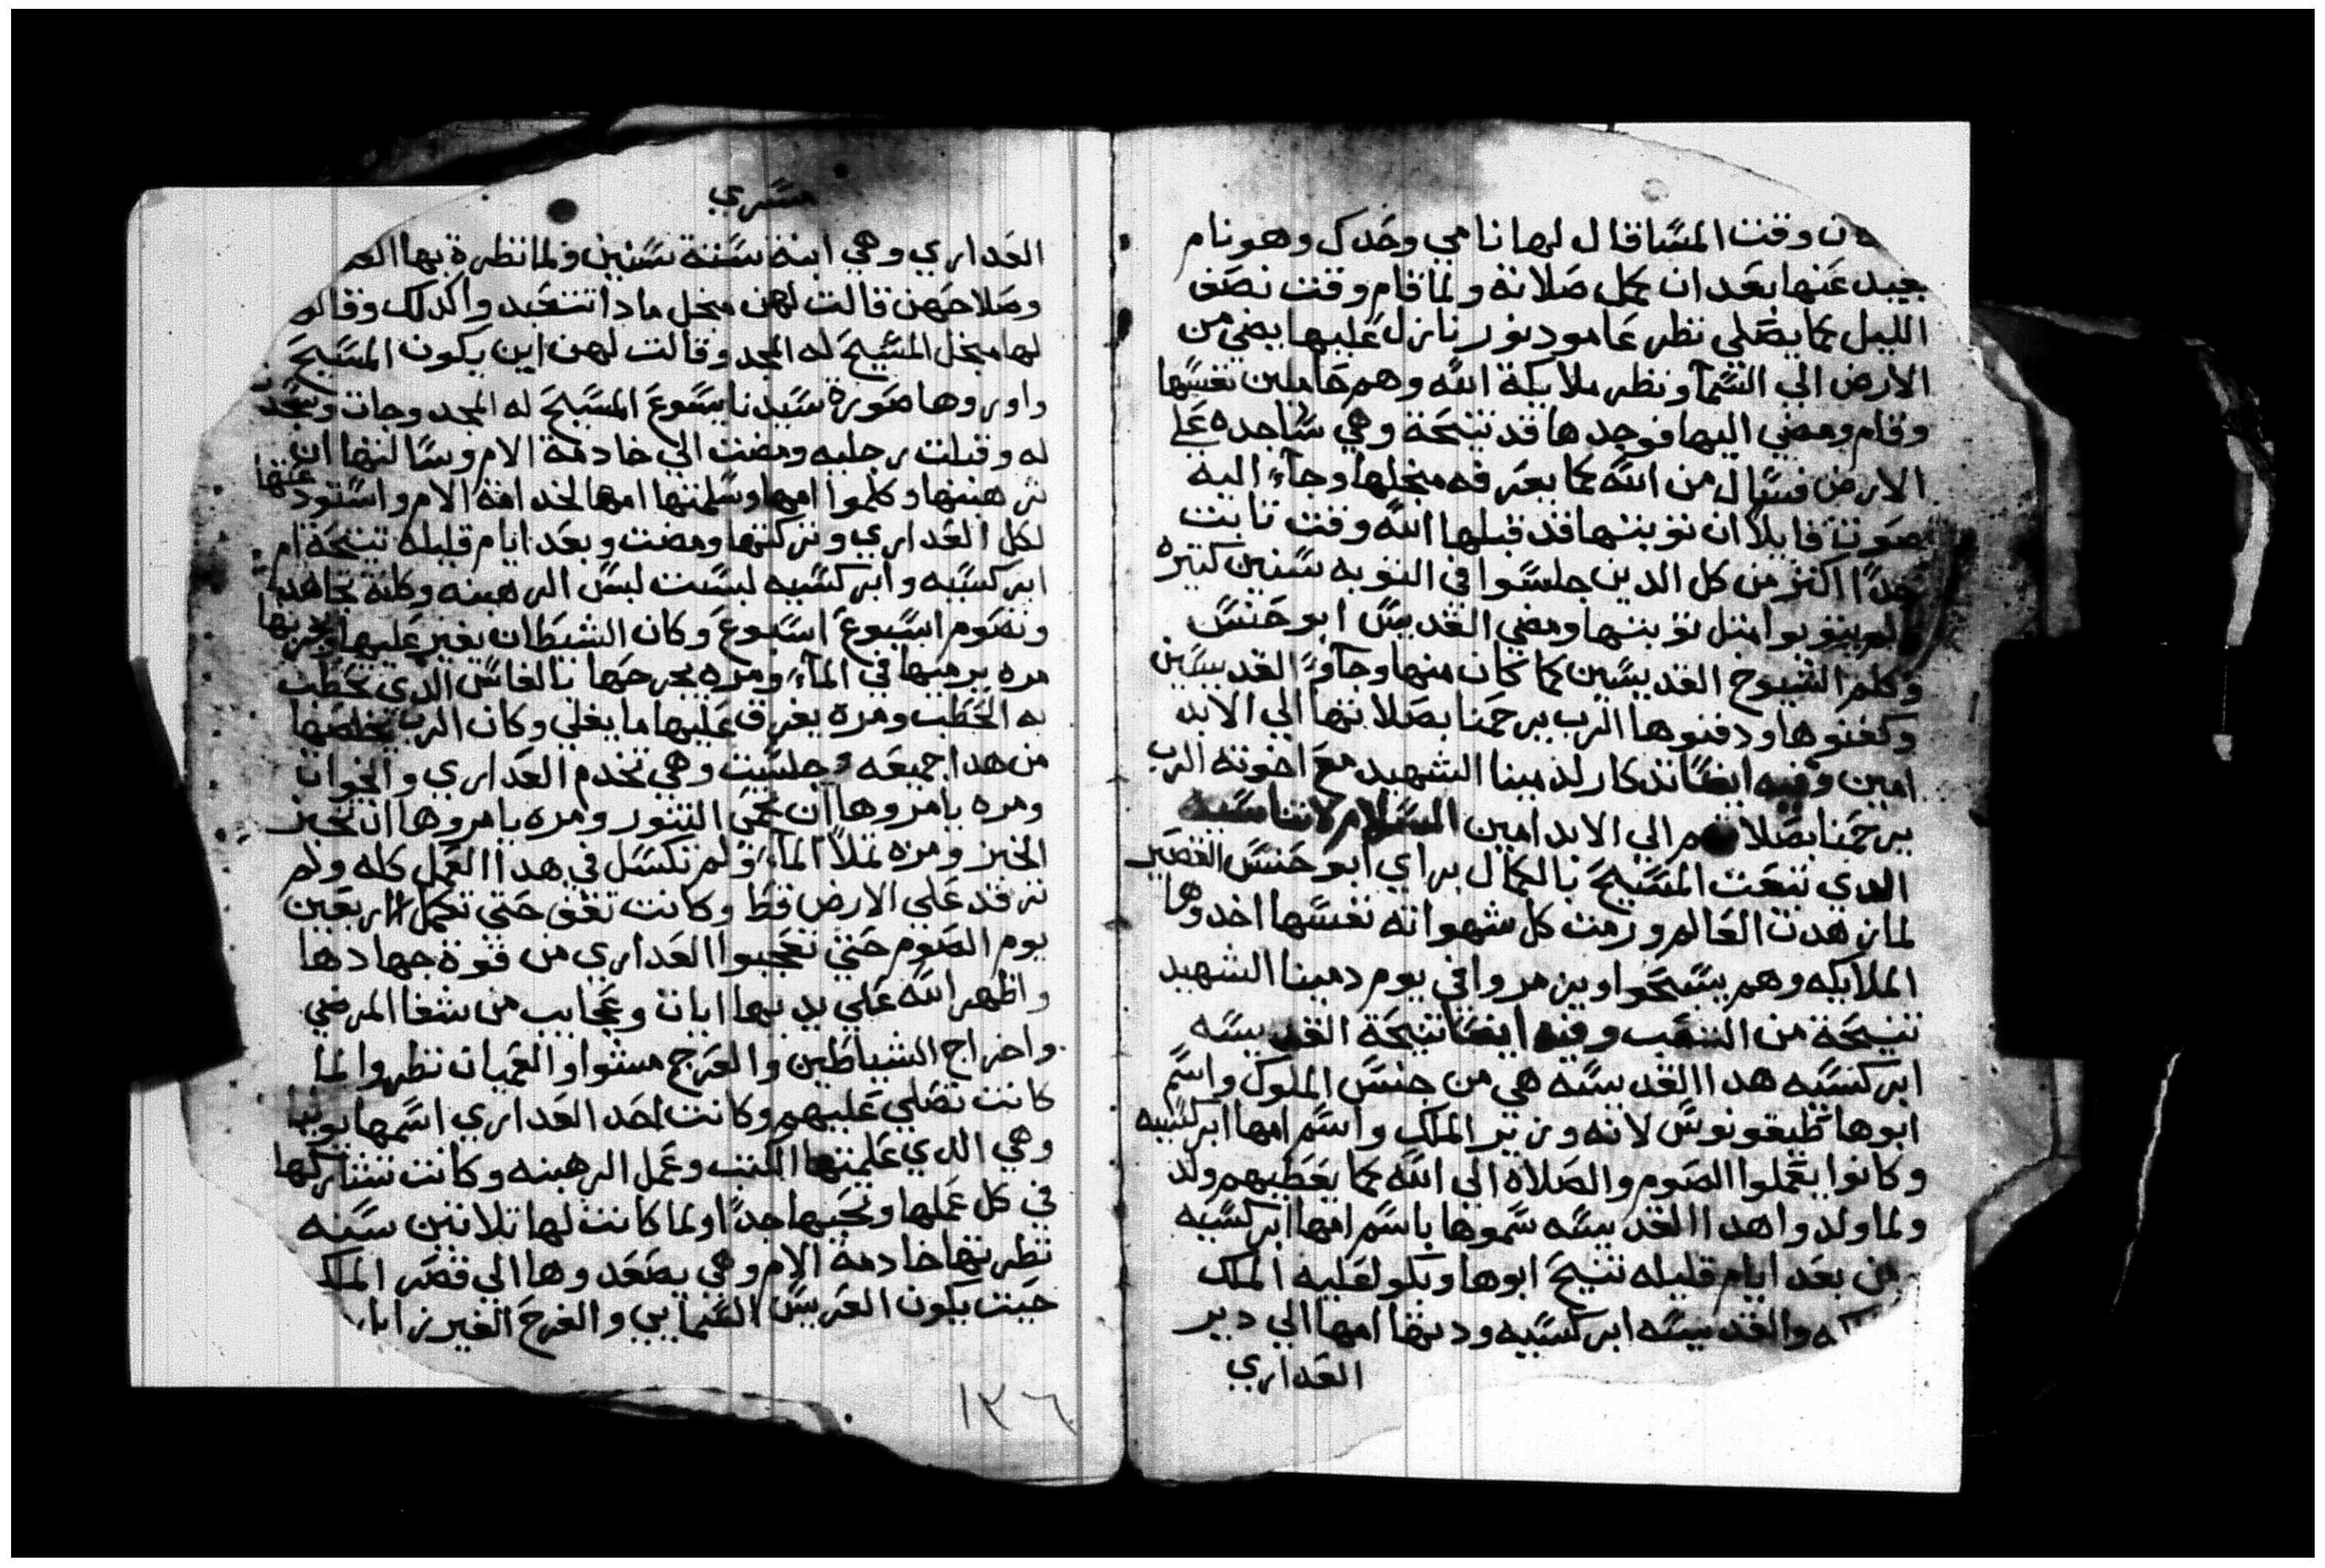 ن وقت المسا قال لها نامي وحدك وهو نام
بعيد عنها بعد ان كمل صلاته ولما قام وقت نصف
الليل كما يصلي نظر عامود نور نازل عليها يضي من
الارض الي السمآ ونظر ملايكة الله وهم حاملين نفسها
وقام ومضي اليها فوجدها قد تنيحة وهي ساجده علي
الارض فسال من الله كما يعرفه منجلها وجآء اليه
صوت قايلا ان توبتها قد قبلها الله وقت تابت
جدًا اكتر من كل الدين جلسوا في التوبه سنين كتيره
ولم يتوبوا متل توبتها ومضي القديس ابو حنس
وكلم الشيوخ القديسين كما كان منها وجآوًا القديسين
وكفنوها ودفنوها الرب يرحمنا بصلاتها الي الابد
امين وفيه ايضًا تدكار لدمينا الشهيد مع اخوته الرب
يرحمنا بصلا م الي الابد امين السلام لاتناسيه
الدي تنعت المسيح بالكمال براي ابو حنس القصير
لما زهدت العالم ورمت كل شهواته نفسها اخدوها
الملايكه وهم يسبحوا ويزمروا في يوم دمينا الشهيد
تنيحة من التعب وفيه ايضًا تنيحة القديسه
ابركسيه هدا القديسه هي من جنس الملوك واسم
ابوها نطيغونوس لانه وزير الملك واسم امها ابركسيه
وكانوا يعملوا الصوم والصلاة الي الله كما يعطيهم ولد
ولما ولدوا هدا القديسه سموها باسم امها ابركسيه
من بعد ايام قليله تنيح ابوها وبكوا عليه الملك
والقديسه ابركسيه ودتها امها الي دير
العداري
مسري
العداري وهي ابنة ستة سنين ولما نظرة بها
وصلاحهن قالت لهن منجل مادا تتعبد واكدلك وقالو
لها منجل المسيح له المجد وقالت لهن اين يكون المسيح
واوروها صورة سيدنا يسوع المسيح له المجد وجات وسجدت
له وقبلت رجليه ومضت الي خادمة الام وسالتها ان
ترهبنها وكلموا امها وسلمتها امها لخدامة الام واستودعتها
لكل العداري وتركتها ومضت وبعد ايام قليله تنيحة ام
ابركسيه وابركسيه لبست لبس الرهبنه وكانة تجاهد
وتصوم اسبوع اسبوع وكان الشيطان يغير عليها ويجربها
مره يرميها في المآء ومره يجرحها بالفاس الدي تحطب
به الحطب ومره يغرق عليها ما يغلي وكان الرب يخلصها
من هدا جميعه وجلست وهي تخدم العداري والخوات
ومره يامروها ان تحمي التنور ومره يامروها ان تخبز
الخبز ومره تملا المآء ولم تكسل في هدا العمل كله ولم
ترقد علي الارض قط وكانت تقف حتي تكمل اربعين
يوم الصوم حتي تعجبوا العداري من قوة جهادها
واظهر الله علي يديها ايات وعجايب من شفا المرضي
واخراج الشياطين والعرج مشوا والعميان نظروا لما
كانت تصلي عليهم وكانت احد العداري اسمها يوليا
وهي الدي علمتها الكتب وعمل الرهبنه وكانت تشاركها
في كل عملها وتحبها جدًا ولما كانت لها تلاتين سنه
نظرتها خادمة الام وهي يصعدوها الي قصر الملك
حيت يكون العريس السمايي والفرح الغير زايل
١٣٦